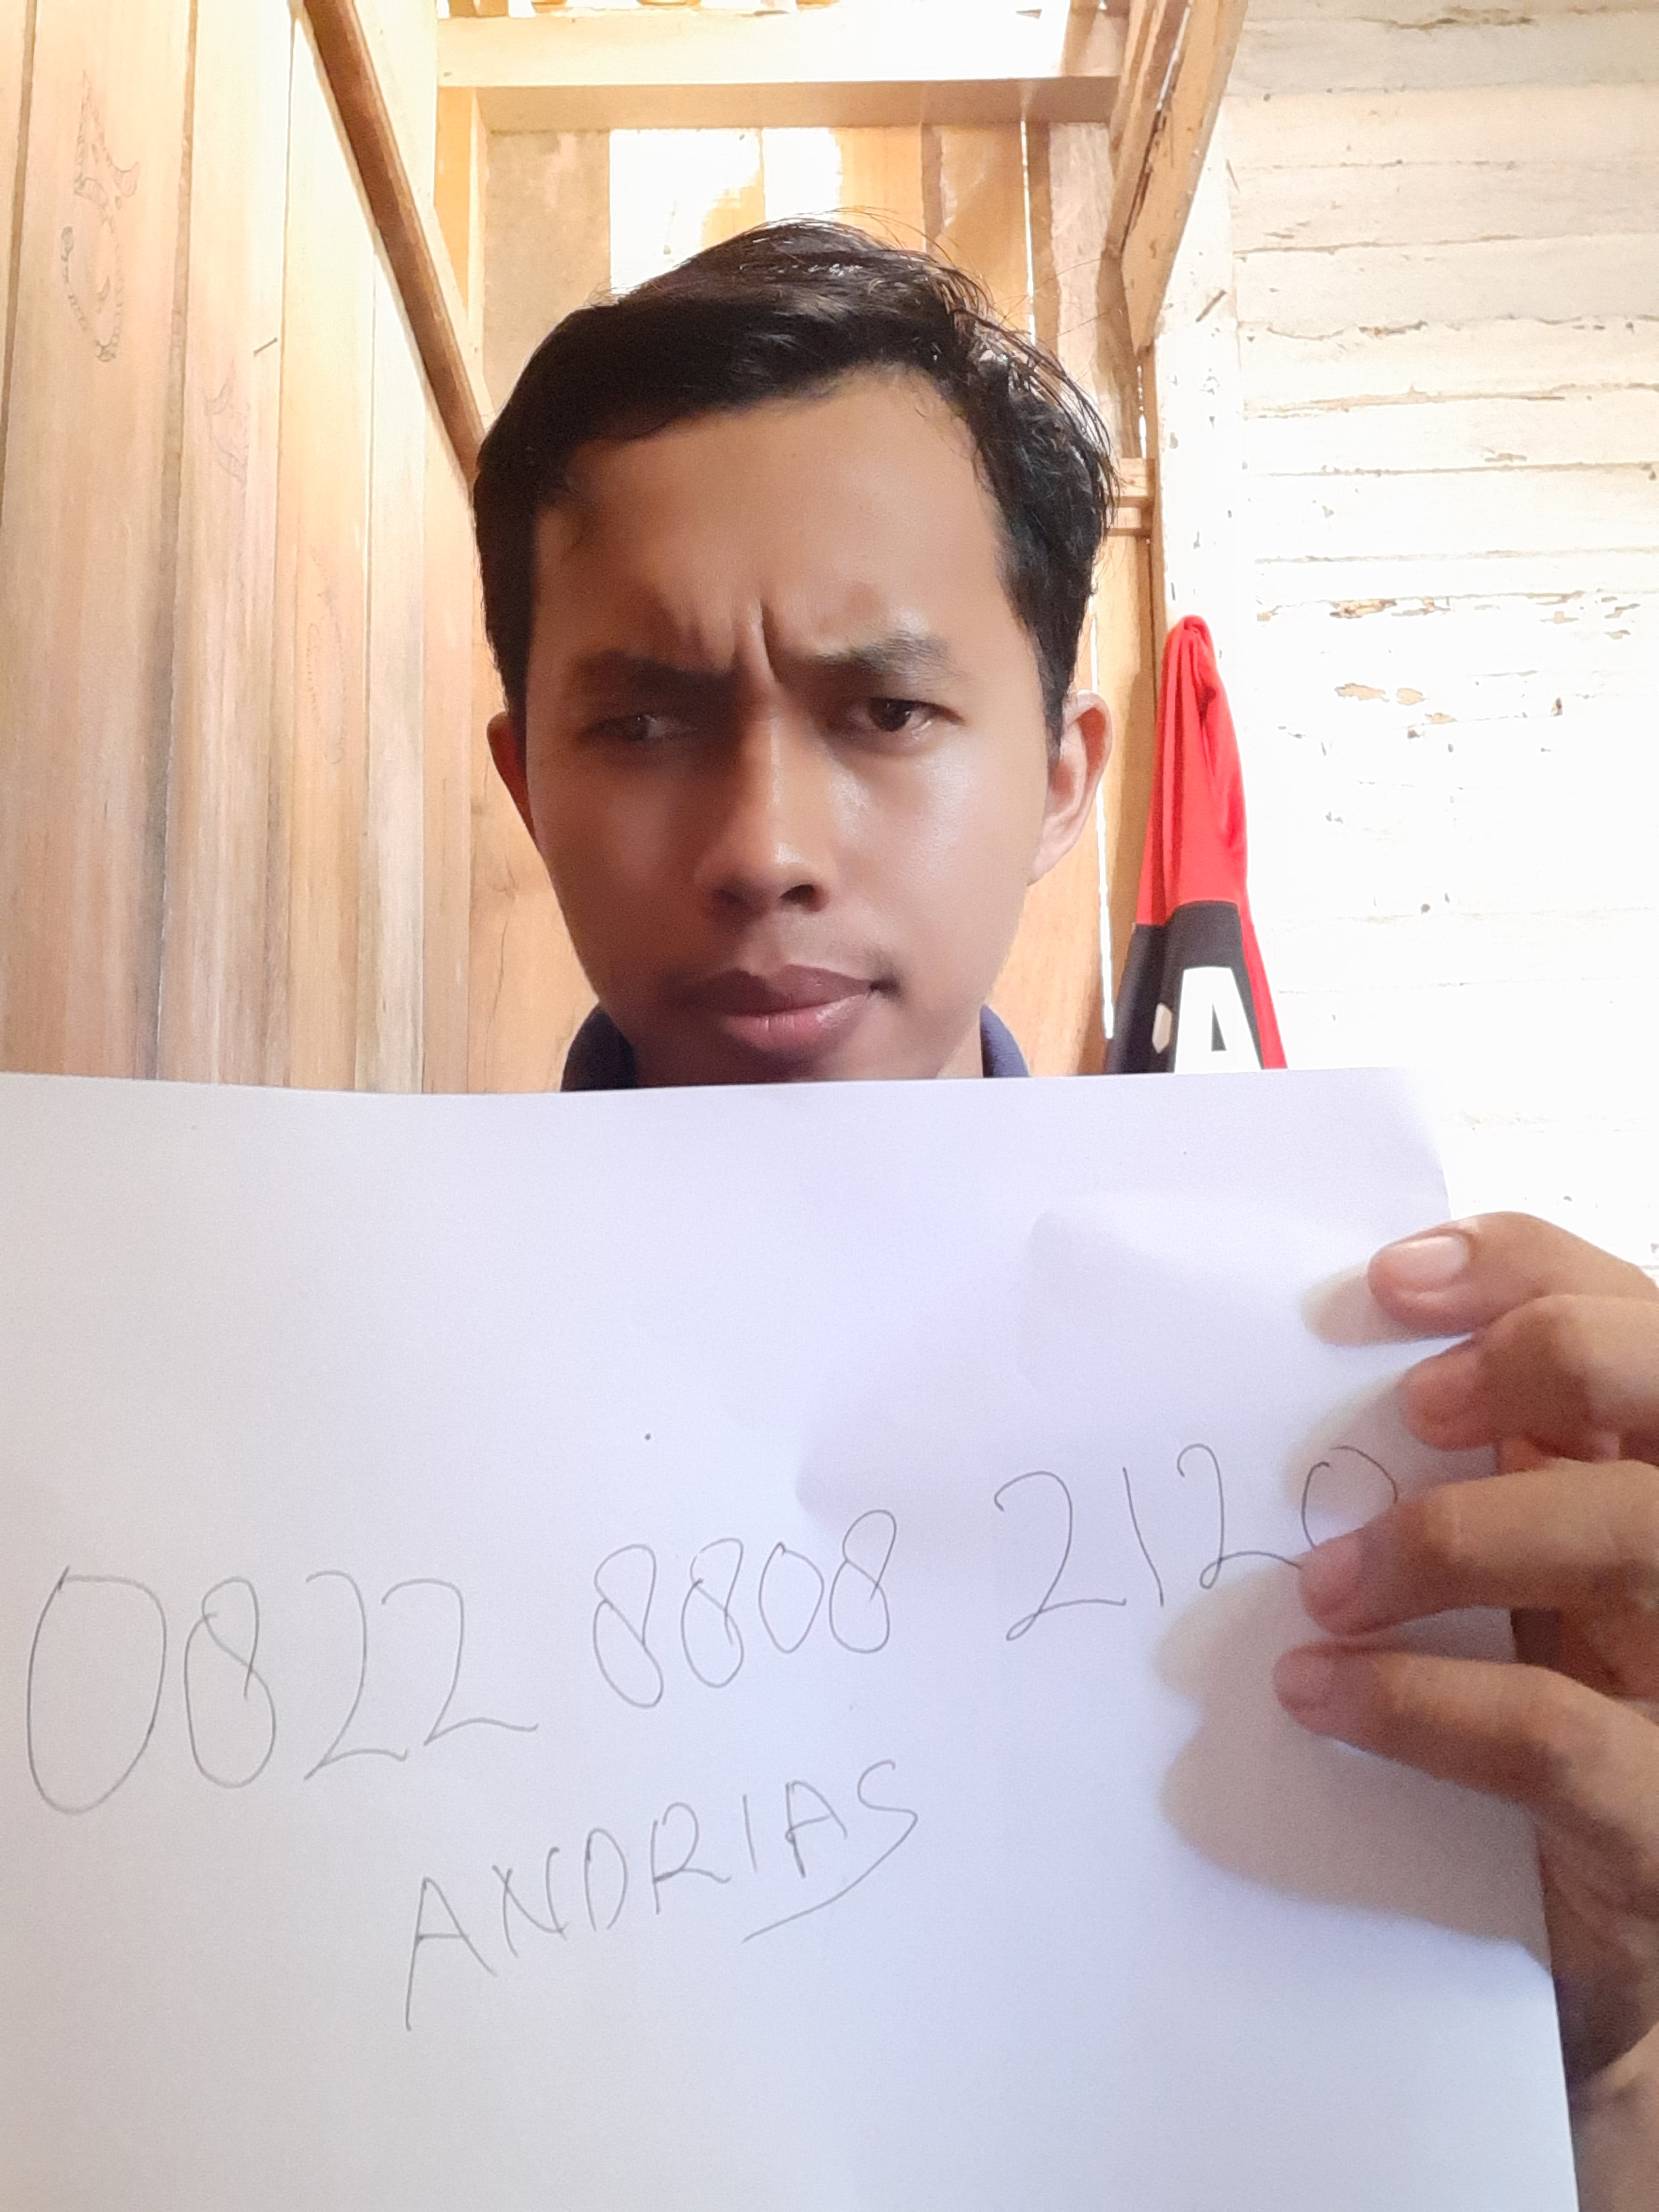 A
0822 8808 2120
ANDRIAS